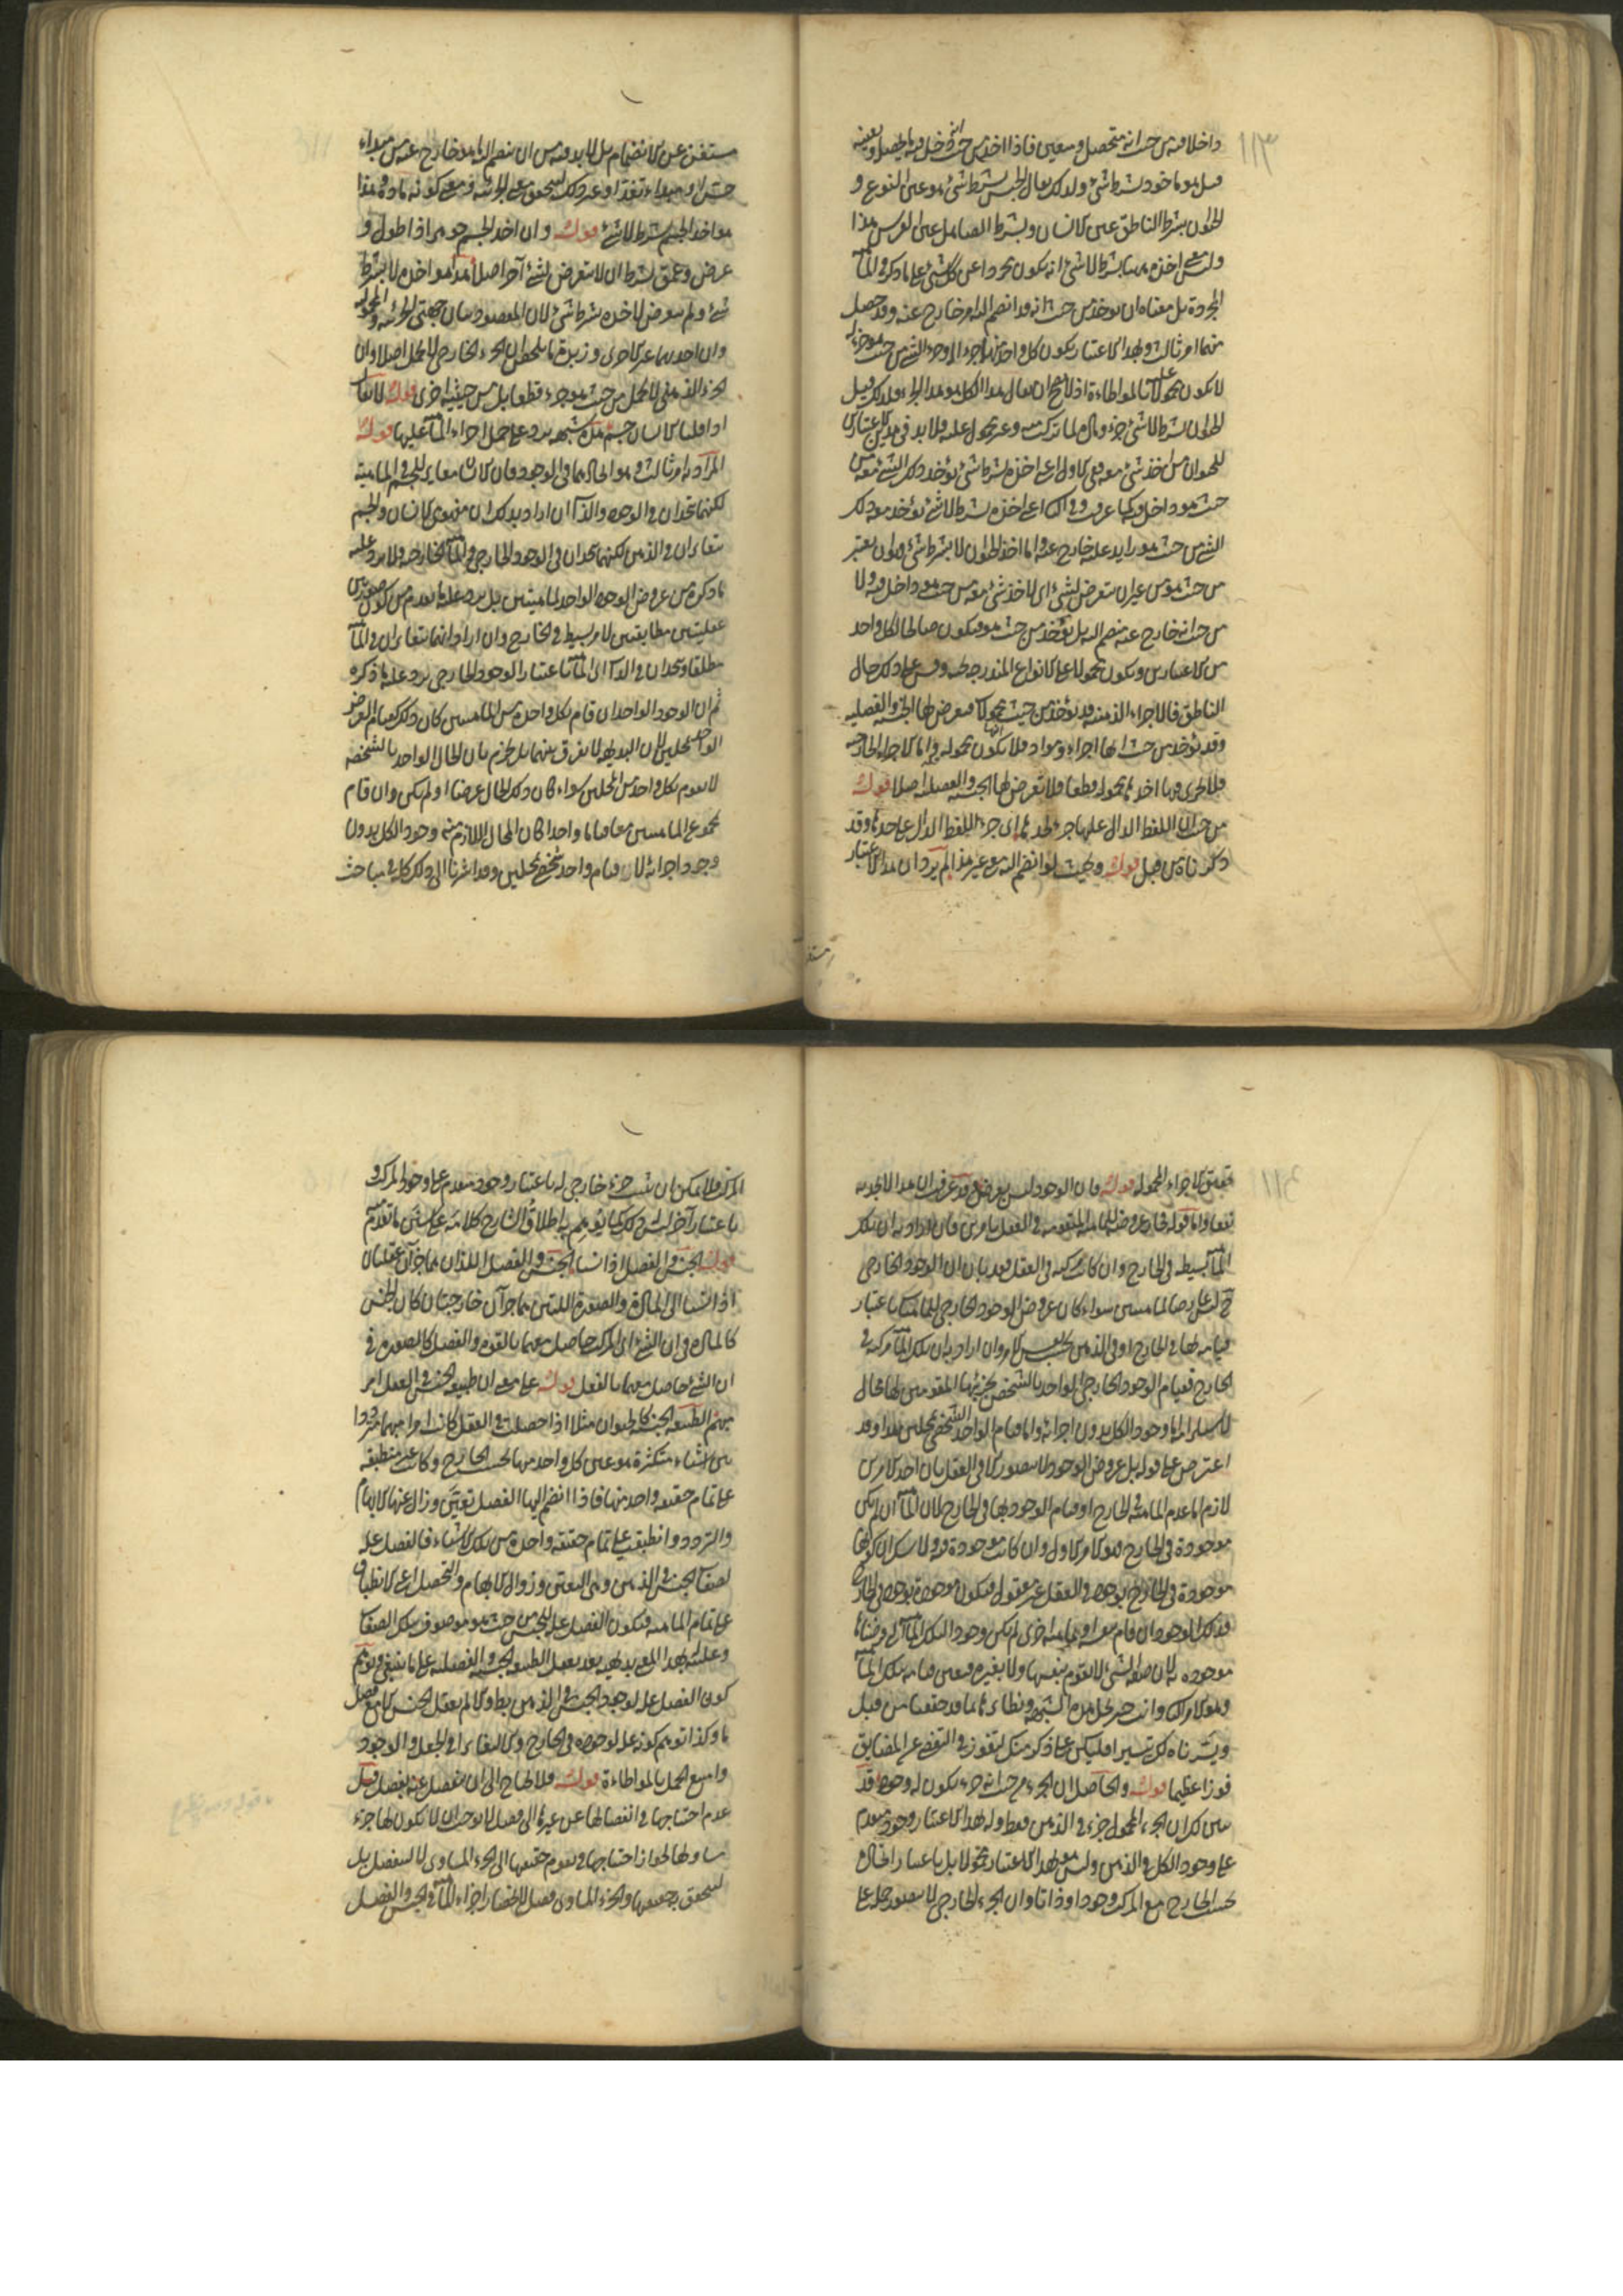 ١١٣
داخلا فيه من حيث انه متحصل ومعين فاذا اخذ من حيث انه داخل فيه
قبل هو ماخوذ بشرط شئ ولذلك يقال الجنس بشرط شئ هو عين النوع و
الحيوان بشرط الناطق عين الانسان وبشرط الصاهل عين الفرس هذا
وليس معنى اخذه ههنا بشرط لا شئ انه يكون مجردا عن كل شئ على ما ذكر في الماهية
المجردة بل معناه ان يوخذ من حيث انه قد انضم اليه امر خارج عنه وقد حصل
منهما امر ثالث وبهذا الاعتبار يكون كل واحد منهما جزءا والجزء
لا يكون محمولا بالمواطاة اذ لا يصح ان يقال هذا الكل هو هذا الجزء ولذلك قيل
الحيوان بشرط لا شئ جزء ومادة لما تركب منه وغير محمول عليه فلا بد في هذين الاعتبارين
للحيوان من اخذ شئ معه ففي الاول اعني اخذه بشرط شئ يؤخذ ذلك الشئ معه من
حيث هو داخل فيه كما عرفت وفي الثاني اعني اخذه بشرط لا شئ يؤخذ معه ذلك
الشئ من حيث هو زايد عليه خارج عنه واما اخذ الحيوان لا بشرط شئ فهو ان يعتبر
من حيث هو من غير ان يتعرض لشئ اي لا يؤخذ شئ معه من حيث هو داخل فيه ولا
من حيث انه خارج عنه منضم اليه بل يؤخذ من حيث هو فيكون صالحا لكل واحد
من الاعتبارين ويكون محمولا على الانواع المندرجة تحته وقس على ذلك حال
الناطق فالاجزاء الذهنية قد يؤخذ من حيث هي محمولة فيعرض لها الجنسية والفصلية
وقد تؤخذ من حيث انها اجزاء ومواد فلا يكون محمولة واما الاجزاء الخارجية
فلا يجري فيها اخذها محمولة قطعا فلا تعرض لها الجنسية والفصلية اصلا قوله
من حيث ان اللفظ الدال عليها جزء لحدها اي جزء اللفظ الدال على حدها وقد
ذكرناه من قبل قوله وبحيث لو انضم اليه غيره هذا لم يرد ان هذا الاعتبار
مستغن
مستغن عن الانضمام بل لا بد فيه من ان ينضم اليه امر خارج عنه من مبداء
حس او مبداء تغذ او غير ذلك ليتحقق معنى الجزئية ومعنى كونه مادة وهذا
هو اخذ الجسم بشرط لا شئ قوله وان اخذ الجسم جوهرا ذا طول و
عرض وعمق بشرط ان لا يتعرض لشئ آخر اصلا هذا هو اخذه لا بشرط
شئ ولم يتعرض لاخذه بشرط شئ لان المقصود بيان جهتي الجزئية والمحمولية
وان احديهما غير الاخرى وزبدة ما يلخصه ان الجزء الخارجي لا يحمل اصلا وان
الجزء الذهني لا يحمل من حيث هو جزء قطعا بل من حيثية اخرى قوله لا يقال
اذا قلنا الانسان جسم هذه شبهة يرد على حمل اجزاء الماهية عليها قوله
المراد به امر ثالث وهو اتحادهما في الوجود فان الانسان مغاير للجسم في الماهية
لكنهما متحدان في الوجود والذات ان اراد بذلك ان مفهومي الانسان والجسم
متغايران في الذهن لكنهما متحدان في الوجود الخارجي والماهية الخارجية فلا يرد عليه
ما ذكره من عروض الوجود الواحد لماهيتين بل يرد عليه ما تقدم من كون صورتين
عقليتين مطابقتين لامر بسيط في الخارج وان اراد انهما متغايران في الماهية
مطلقا ومتحدان في الذات اي الماهية باعتبار الوجود الخارجي يرد عليه ما ذكره
ثم ان الوجود الواحد ان قام بكل واحدة من الماهيتين كان ذلك كقيام العرض
الواحد بمحلين لان البديهة لا تفرق بينهما بل تجزم بان الحال الواحد بالشخص
لا يقوم بكل واحد من المحلين سواء كان ذلك الحال عرضا او لم يكن وان قام
بمجموع الماهيتين معا قياما واحدا كان المحال اللازم منه وجود الكل بدون
وجود اجزائه لا قيام واحد شخصي بمحلين وقد اشرنا الى ذلك كله في مباحث
١١٤
تحقيق الاجزاء المحمولة قوله فان الوجود ليس بعرض قد عرفت ان هذا لا يجديه
نفعا واما قوله فان عروضه للماهية المتقومة في العقل بامرين فان اراد به ان تلك
الماهية بسيطة في الخارج وان كانت مركبة في العقل فقد بان ان الوجود الخارجي
ح ليس عارضا لماهيتين سواء كان عروض الوجود الخارجي للماهيات باعتبار
قيامه بها في الخارج او في الذهن بحسب نفس الامر وان اراد به ان تلك الماهية مركبة في
الخارج فقيام الوجود الخارجي الواحد بالشخص بجزئيها المقومين لها محال
لاستلزامه اما وجود الكل بدون اجزائه واما قيام الواحد الشخصي بمحلين هذا وقد
اعترض على قوله بل عروض الوجود لا يتصور الا في العقل بان احد الامرين
لازم اما عدم الماهية في الخارج او قيام الوجود بها في الخارج لان الماهية ان لم يكن
موجودة في الخارج فهو الامر الاول وان كانت موجودة فيه ولا شك ان كونها
موجودة في الخارج بوجود في العقل غير معقول فيكون موجودة بوجود في الخارج
فذلك الوجود ان قام بنفسه او بماهية اخرى لم يكن وجودا لتلك الماهية التي فرضناها
موجودة لان صفة الشئ لا تقوم بنفسها ولا بغيره فتعين قيامه بتلك الماهية
وهو الامر الثاني وانت خبير بحل هذه الشبهة ونظائرها مما قد حققنا من قبل
ويسرناه لك تيسيرا فليكن على ذكر منك لتفوز في التفصي عن المضايق
فوزا عظيما قوله والحاصل ان الجزء من حيث انه جزء يكون له وجود قد
تبين لك ان الجزء المحمول جزء في الذهن فقط وله بهذا الاعتبار وجود متقدم
على وجود الكل في الذهن وليس هو بهذا الاعتبار محمولا بل باعتبار اتحاده
بحسب الخارج مع المركب وجودا وذاتا وان الجزء الخارجي لا يتصور حمله على
المركب فلا يمكن ان يثبت جزء خارجي له باعتبار وجود متقدم على وجود المركب و
باعتبار آخر ليس كذلك كما توهم به اطلاق الشارح كلامه على ما تقدم
قوله الجنس والفصل اذا نسبا الجنس والفصل اللذان هما جزآن عقليان
اذا نسبا الى المادة والصورة اللتين هما جزآن خارجيان كان الجنس
كالمادة في ان الشئ اي المركب حاصل معهما بالقوة والفصل كالصورة في
ان الشئ حاصل معهما بالفعل قوله على معنى ان طبيعة الجنس في العقل امر
مبهم الطبيعة الجنسية كالحيوان مثلا اذا حصلت في العقل كانت امرا مبهما مترددا
بين اشياء متكثرة هو عين كل واحد منها بحسب الخارج وكانت غير منطبقة
على تمام حقيقة واحد منها فاذا انضم اليها الفصل تعين وزال عنها الابهام
والتردد وانطبقت على تمام حقيقة واحدة من تلك الاشياء فالفصل علة
لصفات الجنس في الذهن وهي التعين وزوال الابهام والتحصيل اعني الانطباق
على تمام الماهية فيكون الفصل علة للجنس من حيث هو موصوف بتلك الصفات
وعليته بهذا المعنى بديهية بعد تعقل الطبيعة الجنسية والفصلية على ما ينبغي وتوهم
كون الفصل علة لوجود الجنس في الذهن بط والا لم يعقل الجنس الا مع فصل
ما وكذا توهم كونه علة لوجوده في الخارج والا لتغايرا في الجعل والوجود
وامتنع الحمل بالمواطاة قوله فلا يحتاج الى ان ينفصل عنه بفصل قيل
عدم احتياجها في انفصالها عن غيرها الى فصل لا يوجب ان لا يكون لها جزء
مساو لها لجواز احتياجها في تقوم حقيقتها الى الجزء المساوي لا لتنفصل بل
لتتحقق حقيقتها والجزء المساوي فصل لانحصار اجزاء الماهية في الجنس والفصل